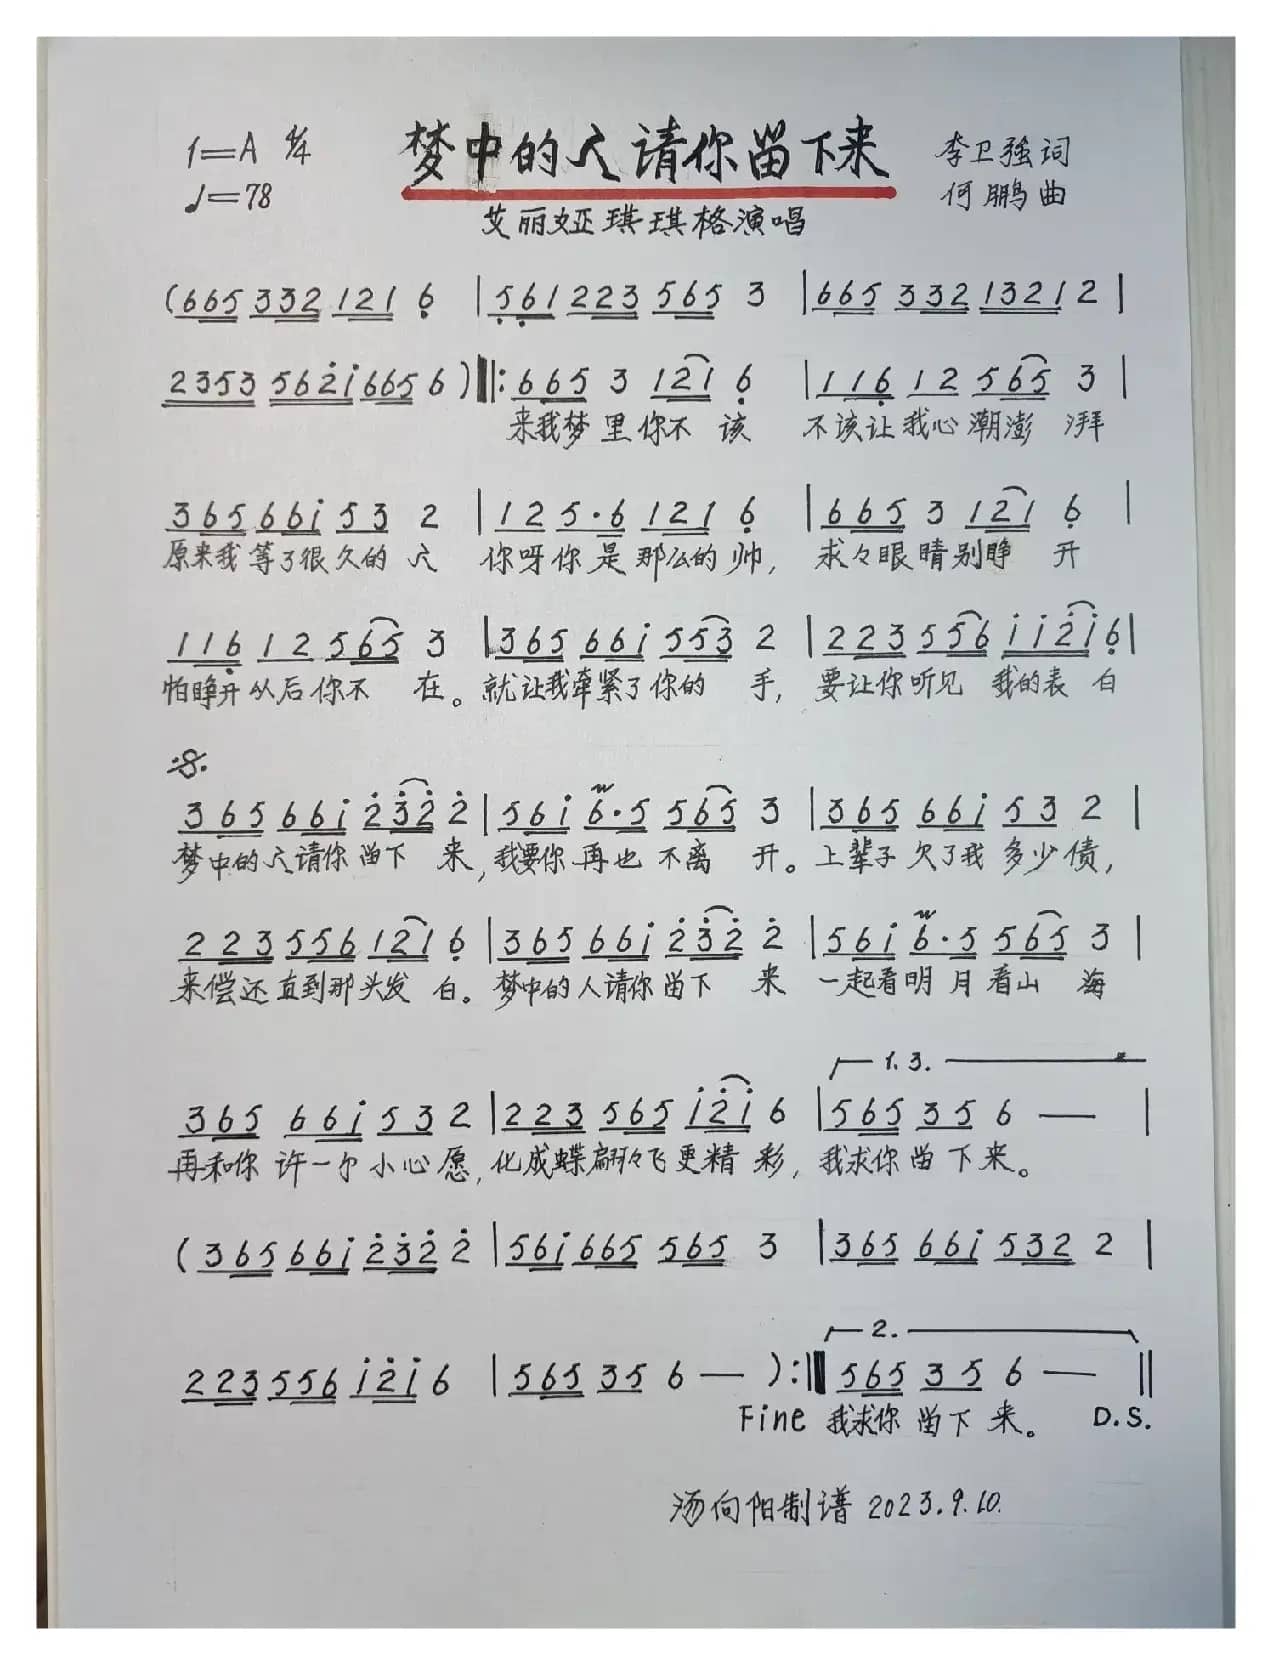 1=A 4/4 梦中的人请你留下来 李卫强词
♩=78 何鹏曲
艾丽娅琪琪格演唱
(665 332 121 6 | 561 223 565 3 | 665 332 1321 2 |
2353 562i 665 6 ) ‖: 665 3 121 6 | 116 12 565 3 |
来我梦里你不该 不该让我心潮澎湃
365 66i 53 2 | 12 5·6 121 6 | 665 3 121 6 |
原来我等了很久的人 你呀你是那么的帅, 求々眼睛别睁开
116 12 565 3 | 365 66i 553 2 | 223 556 ii2i 6 |
怕睁开从后你不在。就让我牵紧了你的手, 要让你听见我的表白
365 66i 232 2 | 56i 6·5 565 3 | 365 66i 53 2 |
梦中的人请你留下来, 我要你再也不离开。上辈子欠了我多少债,
223 556 121 6 | 365 66i 232 2 | 56i 6·5 565 3 |
来偿还直到那头发白。梦中的人请你留下来 一起看明月看山海
1. 3.
365 66i 53 2 | 223 565 i2i 6 | 565 35 6 — |
再和你许一个小心愿, 化成蝶翩々飞更精彩, 我求你留下来。
( 365 66i 232 2 | 56i 665 565 3 | 365 66i 532 2 |
2.
223 556 i2i 6 | 565 35 6 — ) :‖ 565 35 6 — ‖
Fine 我求你留下来。 D.S.
汤向阳制谱 2023.9.10.